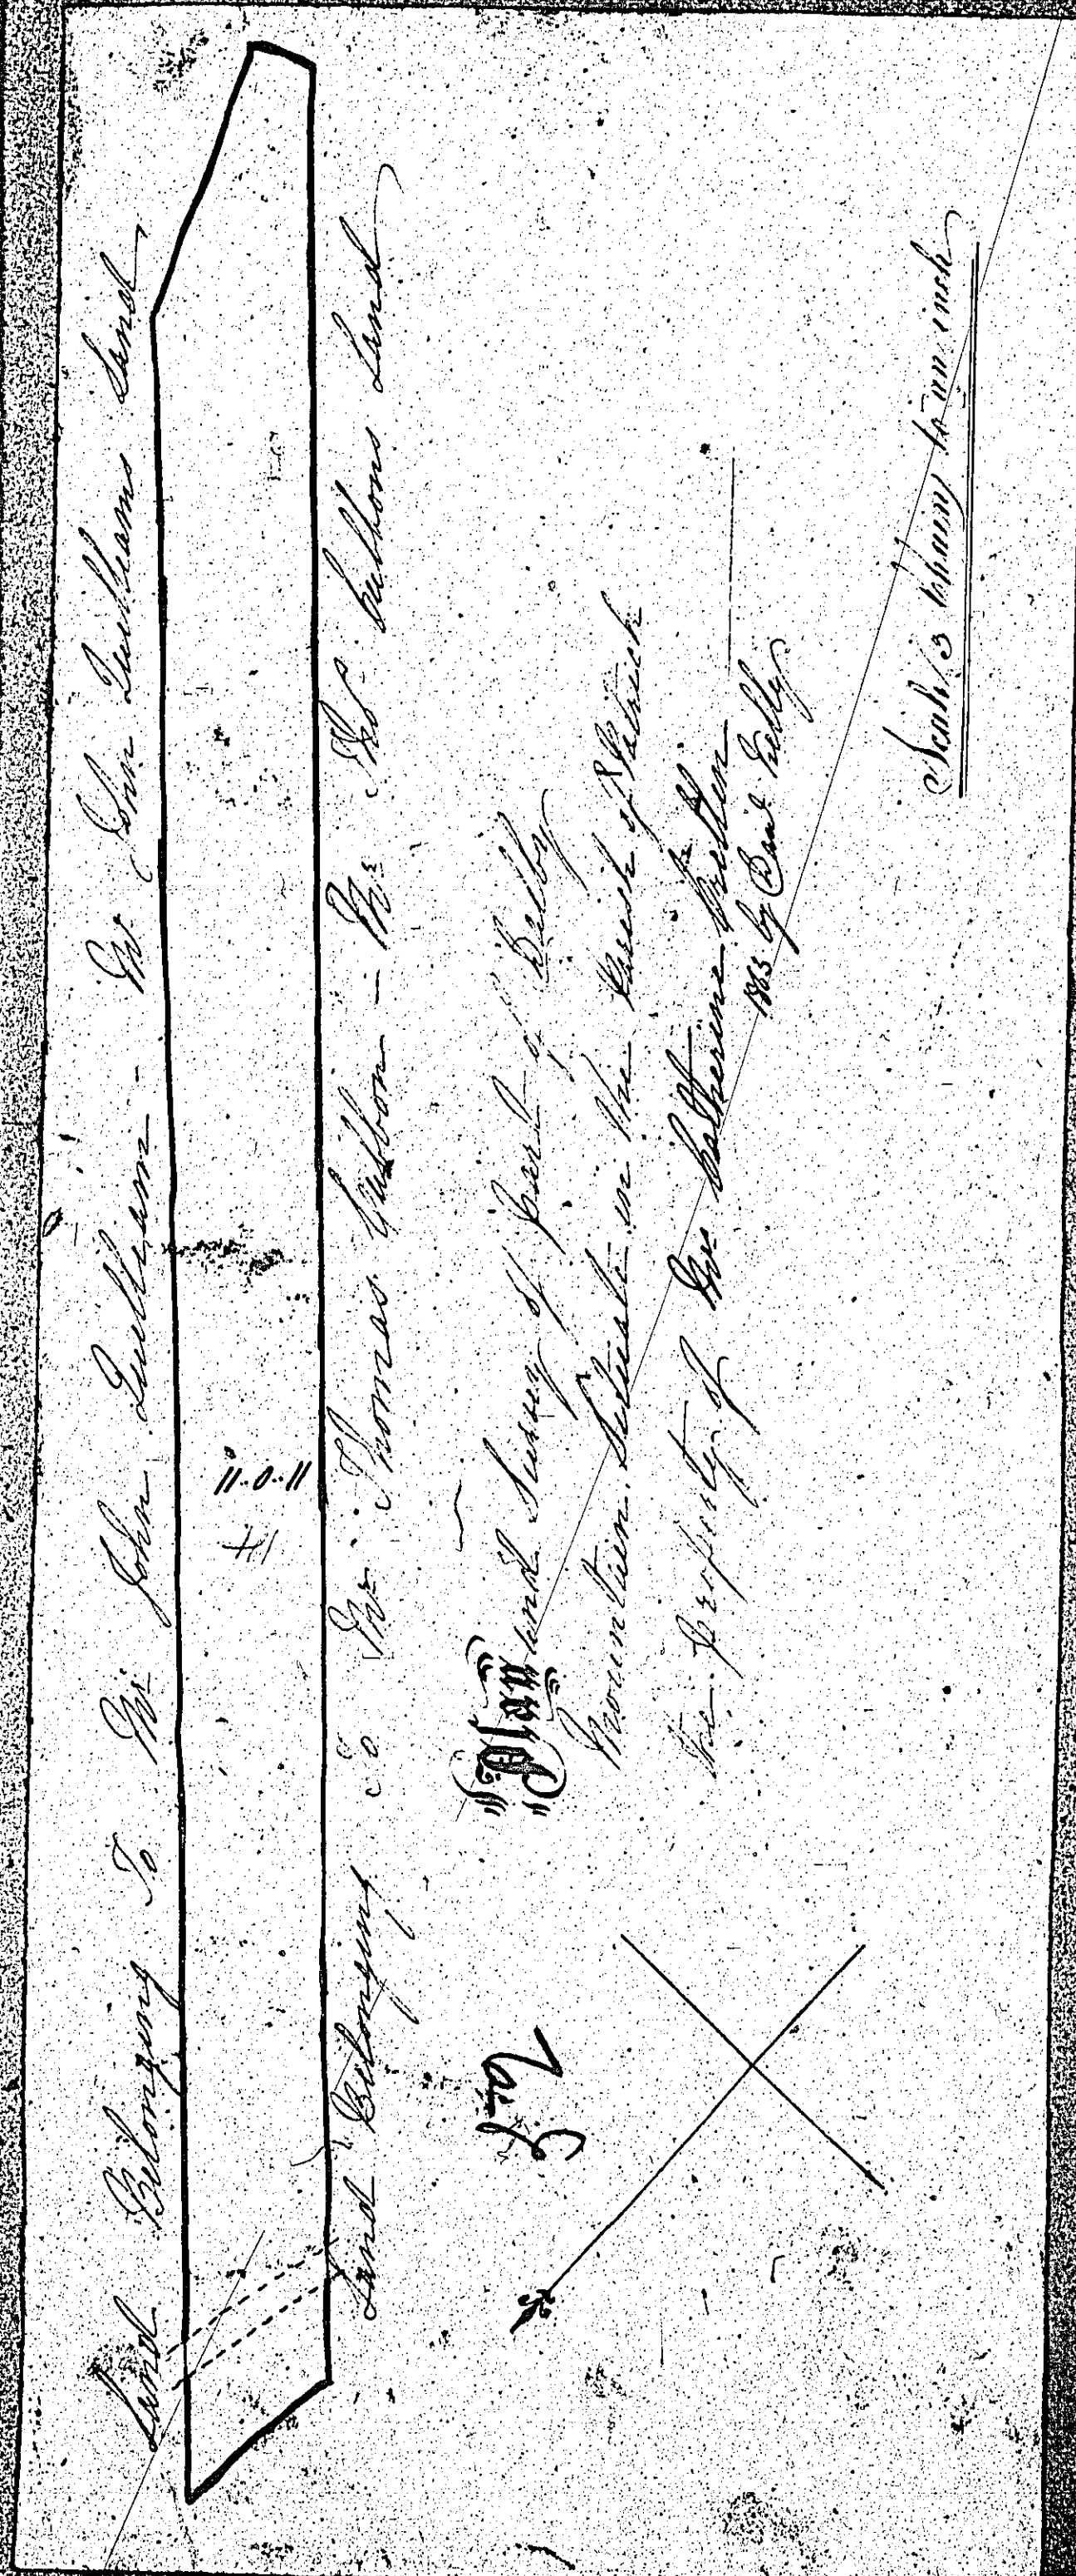 Land Belonging To Mr John Quilliam - Mr Jhn Quilliams Land
11..0..11
Land Belonging To Mr Thomas Gubbon - Mr Thos Cubbons Land
Plan and Survey of part of Dalby
Mountien Situate in the Parish of Patrick
the Property of Mrs Catherine
1865 by Danl
Scale 3 Chain to an inch